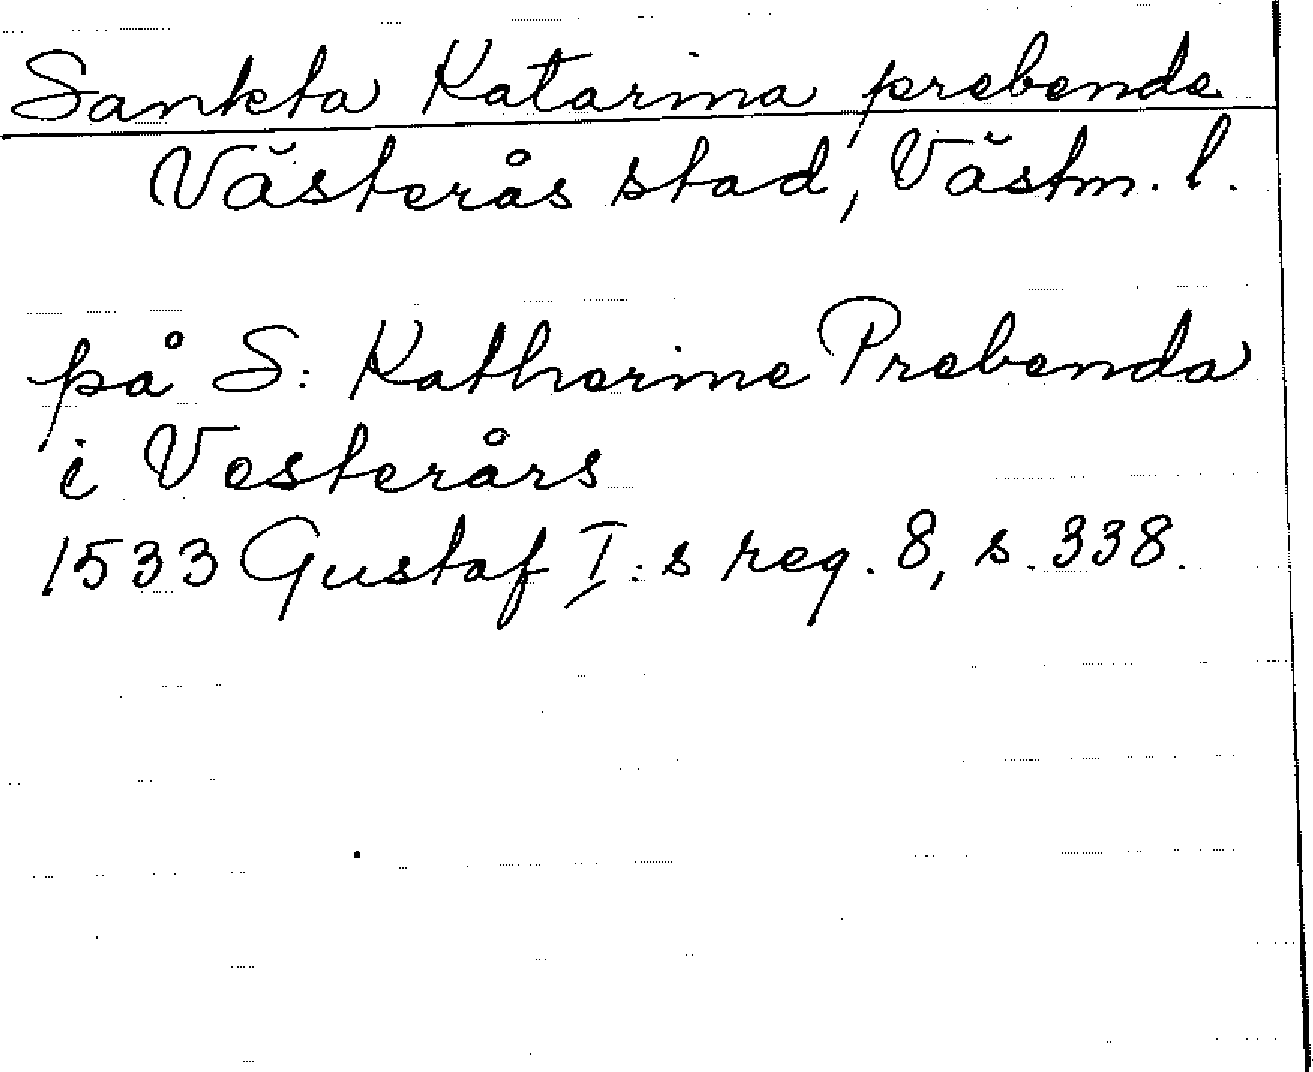 Sankta Katarina prebende
Västerås stad, Västm. l.
på S: Katherine Prebenda
i Vesterårs
1533 Gustaf I:s reg. 8, s. 338.